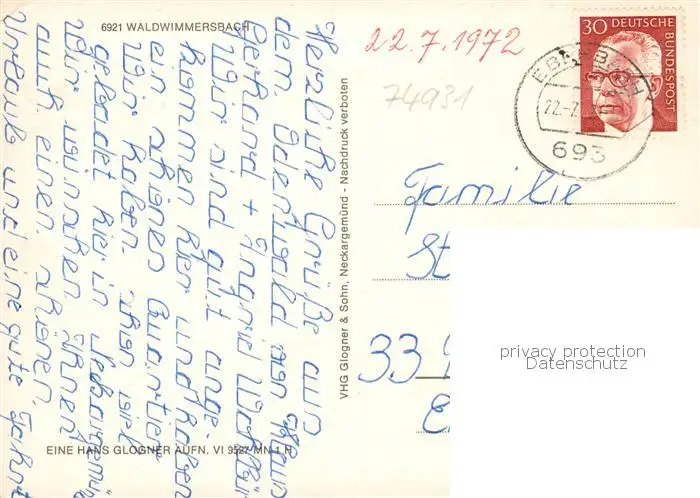 6921 WALDWIMMERSBACH
Herzliche Grüße aus
dem Odenwald von
Gerhard + Ingrid
Wir sind gut ange-
kommen hier und haben
ein schönes Quartier
Wir haben schon viel
gebadet hier in
Wir wünschen Ihnen
auch einen schönen
Urlaub und eine gute Fahrt
EINE HANS GLOGNER AUFN. VI 9527 MN 1 H
VHG Glogner & Sohn, Neckargemünd - Nachdruck verboten
22.7.1972
74931
30 DEUTSCHE BUNDESPOST
22.-7.
693
Familie
St
33
privacy protection
Datenschutz